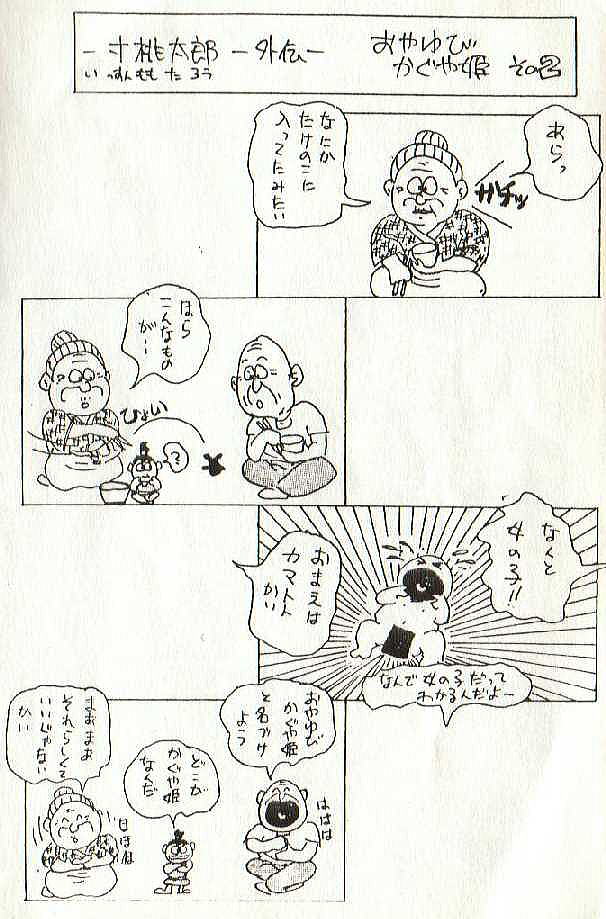 一寸桃太郎 ー外伝ー
いっすんももたろう
おやゆび
かぐや姫 その2
あらっ
ガチッ
なにか
たけのこに
入ってたみたい
ほら
こんなもの
が…
ひょい
?
なんと
女の子!!
おまえは
カマトト
かい
なんで女の子だって
わかるんだよー
おやゆび
かぐや姫
と名づけ
よう
ははは
どこが
かぐや姫
なんだ
まあまあ
それらしくて
いいじゃない
かい
ほほほ